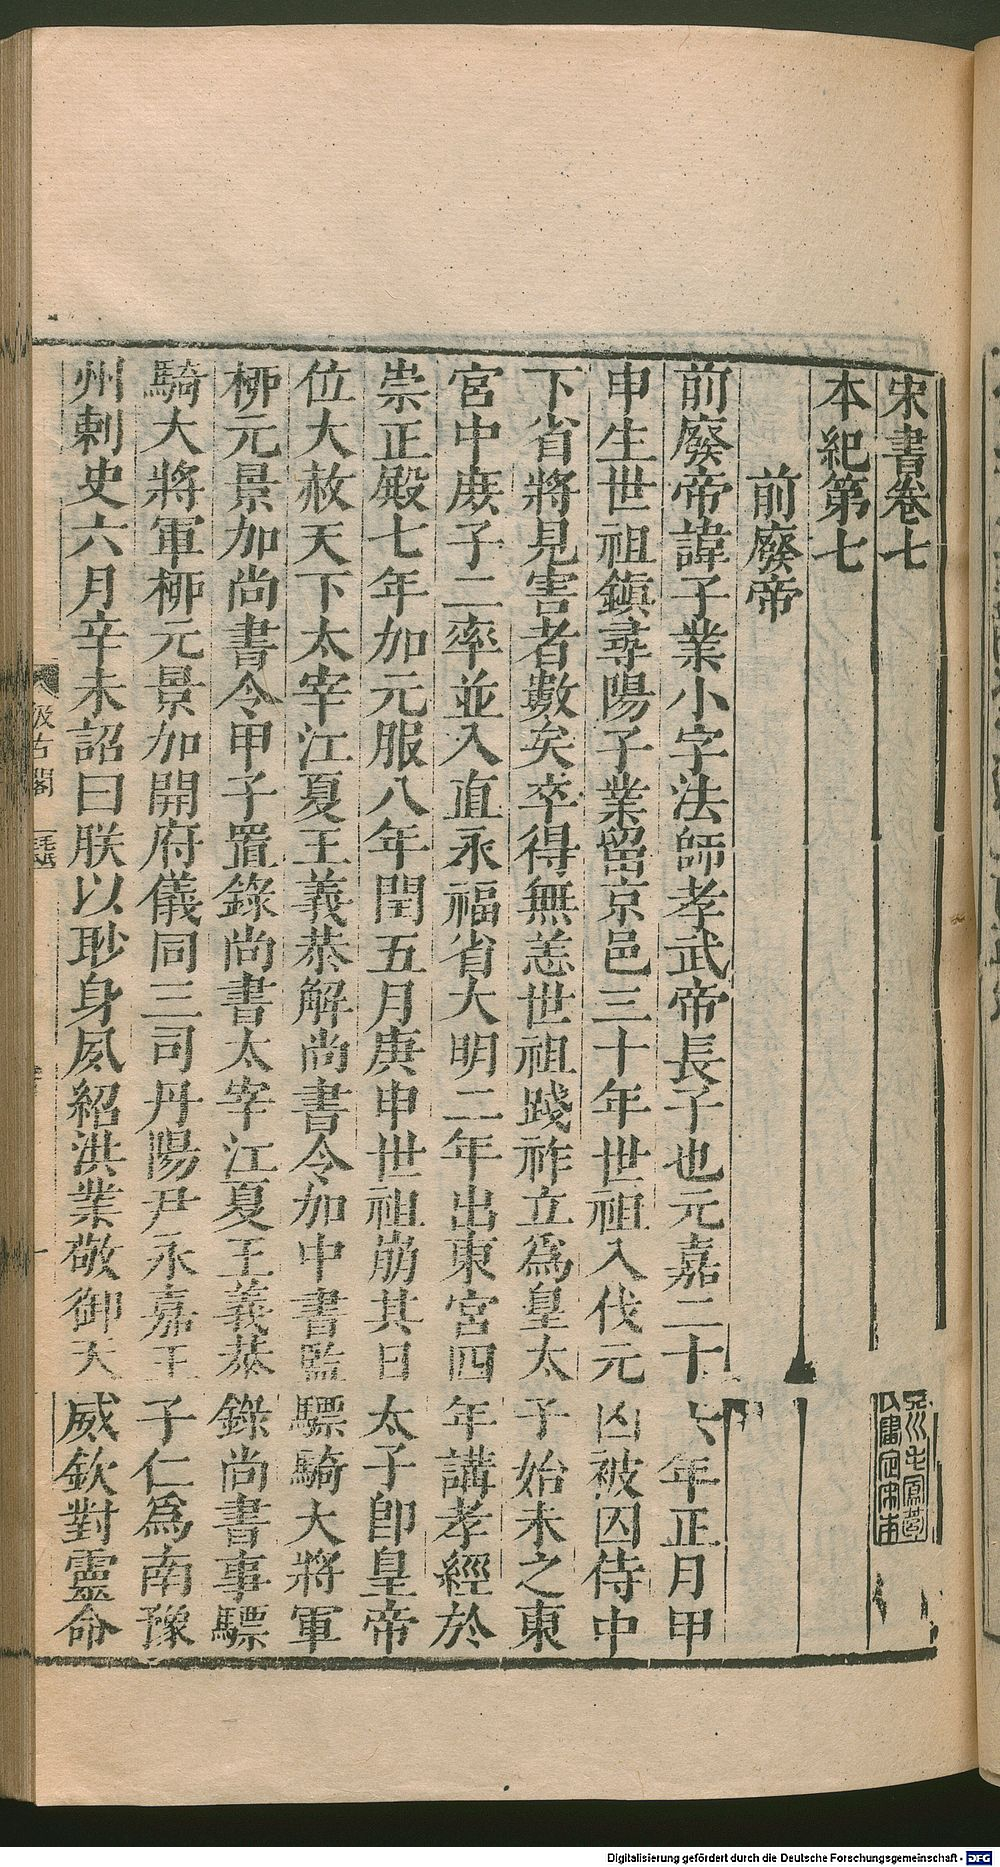 宋書卷七
本紀第七
前廢帝
前廢帝諱子業小字法師孝武帝長子也元嘉二十六年正月甲
申生世祖鎮尋陽子業留京邑三十年世祖入伐元凶被囚侍中
下省將見害者數矣卒得無恙世祖踐祚立爲皇太子始未之東
宮中庶子二率並入直永福省大明二年出東宮四年講孝經於
崇正殿七年加元服八年閏五月庚申世祖崩其日太子卽皇帝
位大赦天下太宰江夏王義恭解尚書令加中書監驃騎大將軍
柳元景加尚書令甲子置錄尚書太宰江夏王義恭錄尚書事驃
騎大將軍柳元景加開府儀同三司丹陽尹永嘉王子仁爲南豫
州刺史六月辛未詔曰朕以眇身夙紹洪業敬御天威欽對靈命
汲古閣
毛氏
Digitalisierung gefördert durch die Deutsche Forschungsgemeinschaft - DFG